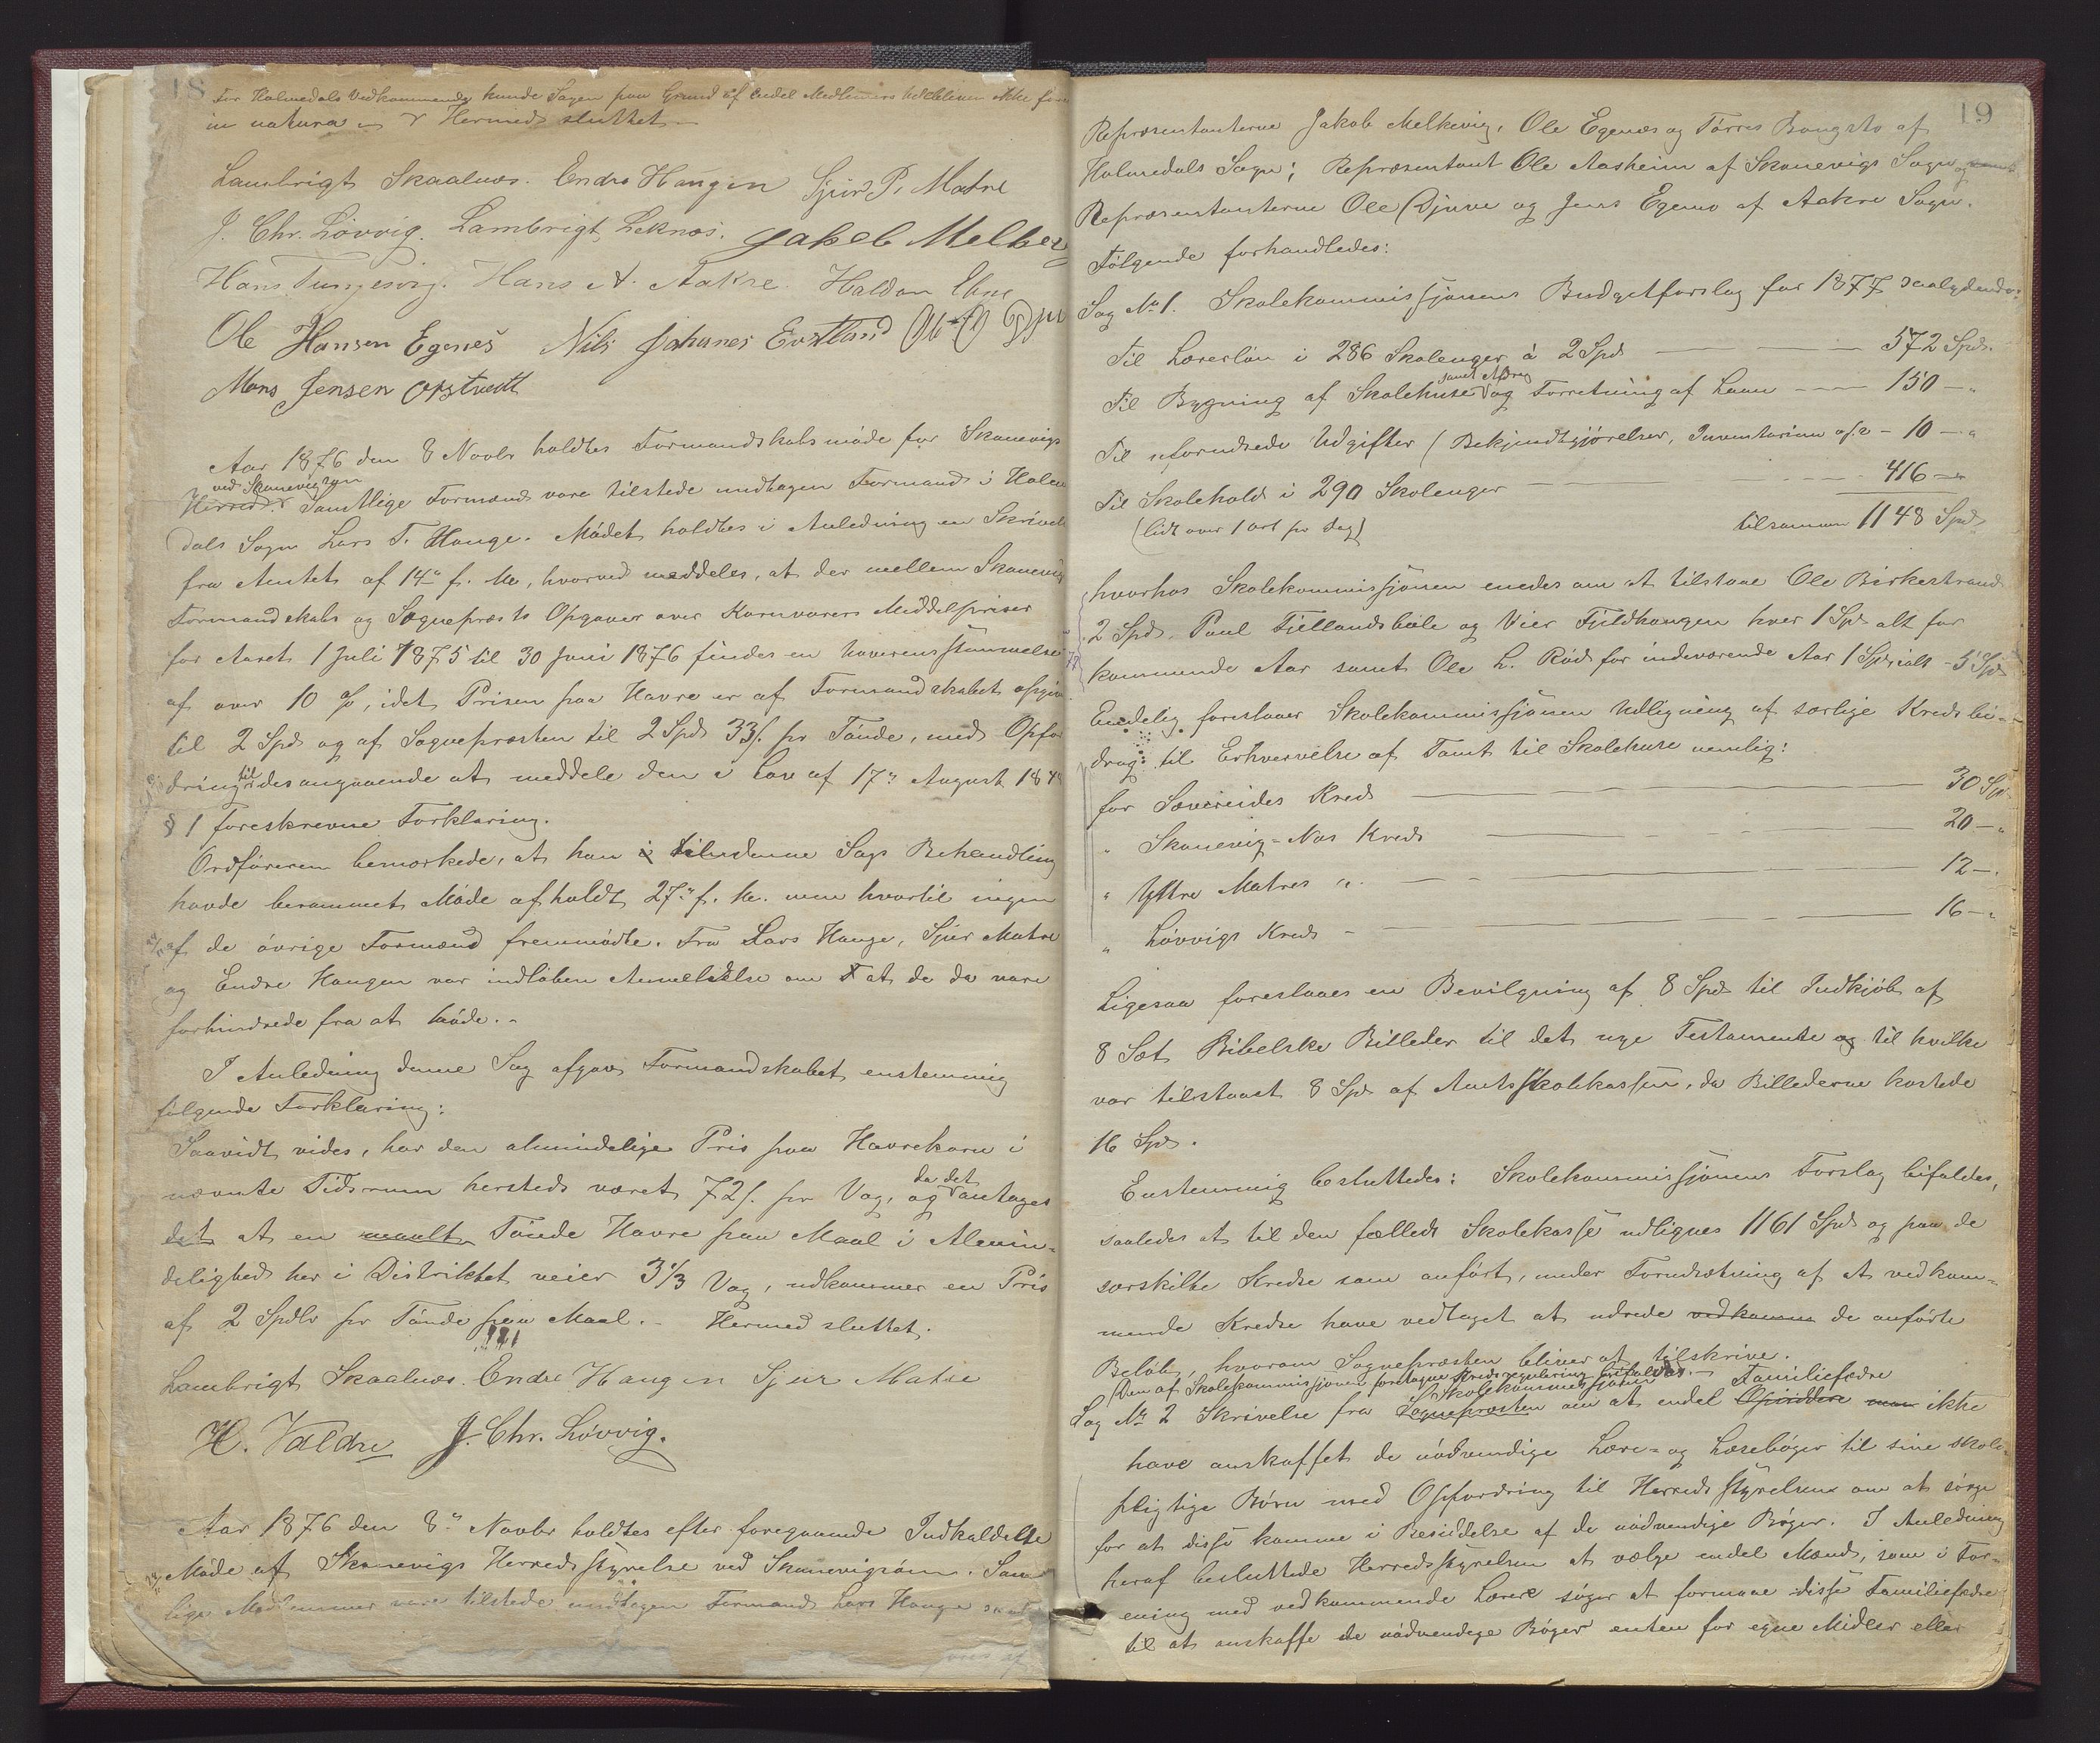 18
For Holmedals Vedkommende kunde Sagen paa Grund af endel Medlemmers Udeblivelse ikke
in natura. Hermed sluttet.
Lambrigt Skaalnæs. Endre Haugen Sjur P. Matre
J. Chr. Løvvig. Lambrigt Leknæs. Jakob Melkev
Hans Tungesvig. Hans A. Aakre. Haldor Ebne
Ole Hansen Egenes Nils Johanes
Mons Jensen Opstvedt
Aar 1876 den 8 Novbr holdtes Formandskabsmøde for Skonevigs
ved Skonevigsøen
Herred. Samtlige Formænd vare tilstede undtagen Formand i Holme
dals Sogn Lars T. Hauge. Mødet holdtes i Anledning en Skrivel
fra Amtet af 14de f. M., hvorved meddeles, at der mellem Skonevigs
Formandskabs og Sogneprests Opgaver over Kornvarers Middelpriser
for Aaret 1 Juli 1875 til 30 Juni 1876 findes en Uoverensstemmelse
af over 10 %, idet Prisen paa Havre er af Formandskabet opgiv
til 2 Spd og af Sognepresten til 2 Spd 33 s. pr Tønde, med Opfor
dring til desangaaende at meddele den i Lov af 17de August 184
§ 1 foreskrevne Forklaring.
Ordføreren bemærkede, at han i til denne Sags Behandling
havde berammet Møde afholdt 27de f. M. men hvortil ingen
af de øvrige Formænd fremmødte. Fra Lars Hauge, Sjur Matre
og Endre Haugen var indløben Anmeldelse om at de da vare
forhindrede fra at møde. -
I Anledning denne Sag afgav Formandskabet enstemmig
følgende Forklaring:
Saavidt vides, har den almindelige Pris paa Havrekorn i
nævnte Tidsrum hersteds været 72 s. pr Vog, og da det antages
det at en Tønde Havre paa Maal i Almin-
delighed her i Distriktet veier 3 1/3 Vog, udkommer en Pris
af 2 Spdlr pr Tønde paa Maal. - Hermed sluttet.
Lambrigt Skaalnæs. Endre Haugen Sjur Matre
H. Valdre J. Chr. Løvvig.
Aar 1876 den 8de Novbr holdtes efter foregaaende Indkaldelse
Møde af Skonevigs Herredsstyrelse ved Skonevigsøen. Samt
lige Medlemmer vare tilstede undtagen Formand Lars Hauge samt
19
Repræsentanterne Jakob Melkevig, Ole Egenæs og Tørres Bongsto af
Holmedals Sogn; Repræsentant Ole Aasheim af Skonevigs Sogn og samt
Repræsentanterne Ole Djuve og Jens Egeno af Aakre Sogn.
Følgende forhandledes:
Sag No 1. Skolekommissjonens Budgetforslag for 1877 saalydende:
Til Lærerløn i 286 Skoleuger à 2 Spd 572 Spd.
Til Bygning af Skolehuse samt Afdrag og Forrentning af Laan 150 - "
Til uforudsede Udgifter (Bekjendtgjørelser, Inventarium o/s v - 10 - "
Til Skolehold i 290 Skoleuger 416 - "
(lidt over 1 ort pr Dag) tilsammen 1148 Spd
hvorhos Skolekommissjonen enedes om at tilstaae Ole Birkestrand
2 Spd. Poul Fjellandsbøle og Vier Fjeldhaugen hver 1 Spd alt for
kommende Aar samt Ole L. Rød for indeværende Aar 1 Spd, ialt - 5 Spd
Endelig foreslaaer Skolekommissjonen Udligning af særlige Kredsbi-
drag til Erhvervelse af Tomt til Skolehuse nemlig:
for Sævereides Kreds 30 Spd
" Skonevig-Næs Kreds 20 - "
" Yttre Matres " 12 - "
" Løvvigs Kreds 16 - "
Ligesaa foreslaaes en Bevilgning af 8 Spd til Indkjøb af
8 Sæt Bibelske Billeder til det nye Testamente og til hvilke
var tilstaaet 8 Spd af Amtsskolekassen, da Billederne kostede
16 Spd.
Enstemmig besluttedes: Skolekommissjonens Forslag bifaldes,
saaledes at til den fælleds Skolekasse udlignes 1161 Spd og paa de
særskilte Kredse som anført, under Forudsætning af at vedkom-
mende Kredse have vedtaget at udrede vedkomm de anførte
Beløb, hvorom Sognepresten bliver at tilskrive.
Den af Skolekommissjonen foretagne Kredsregulering bifaldtes. -
Sag No 2 Skrivelse fra Sognepresten Skolekommissjonen om at endel Opsiddere Familiefædre ikke
have anskaffet de nødvendige Lære- og Læsebøger til sine skole-
pligtige Børn med Opfordring til Herredsstyrelsen om at sørge
for at disse komme i Besiddelse af de nødvendige Bøger. I Anledning
heraf besluttede Herredsstyrelsen at vælge endel Mænd, som i For-
ening med vedkommende Lærere søger at formaae disse Familiefædre
til at anskaffe de nødvendige Bøger enten for egne Midler eller